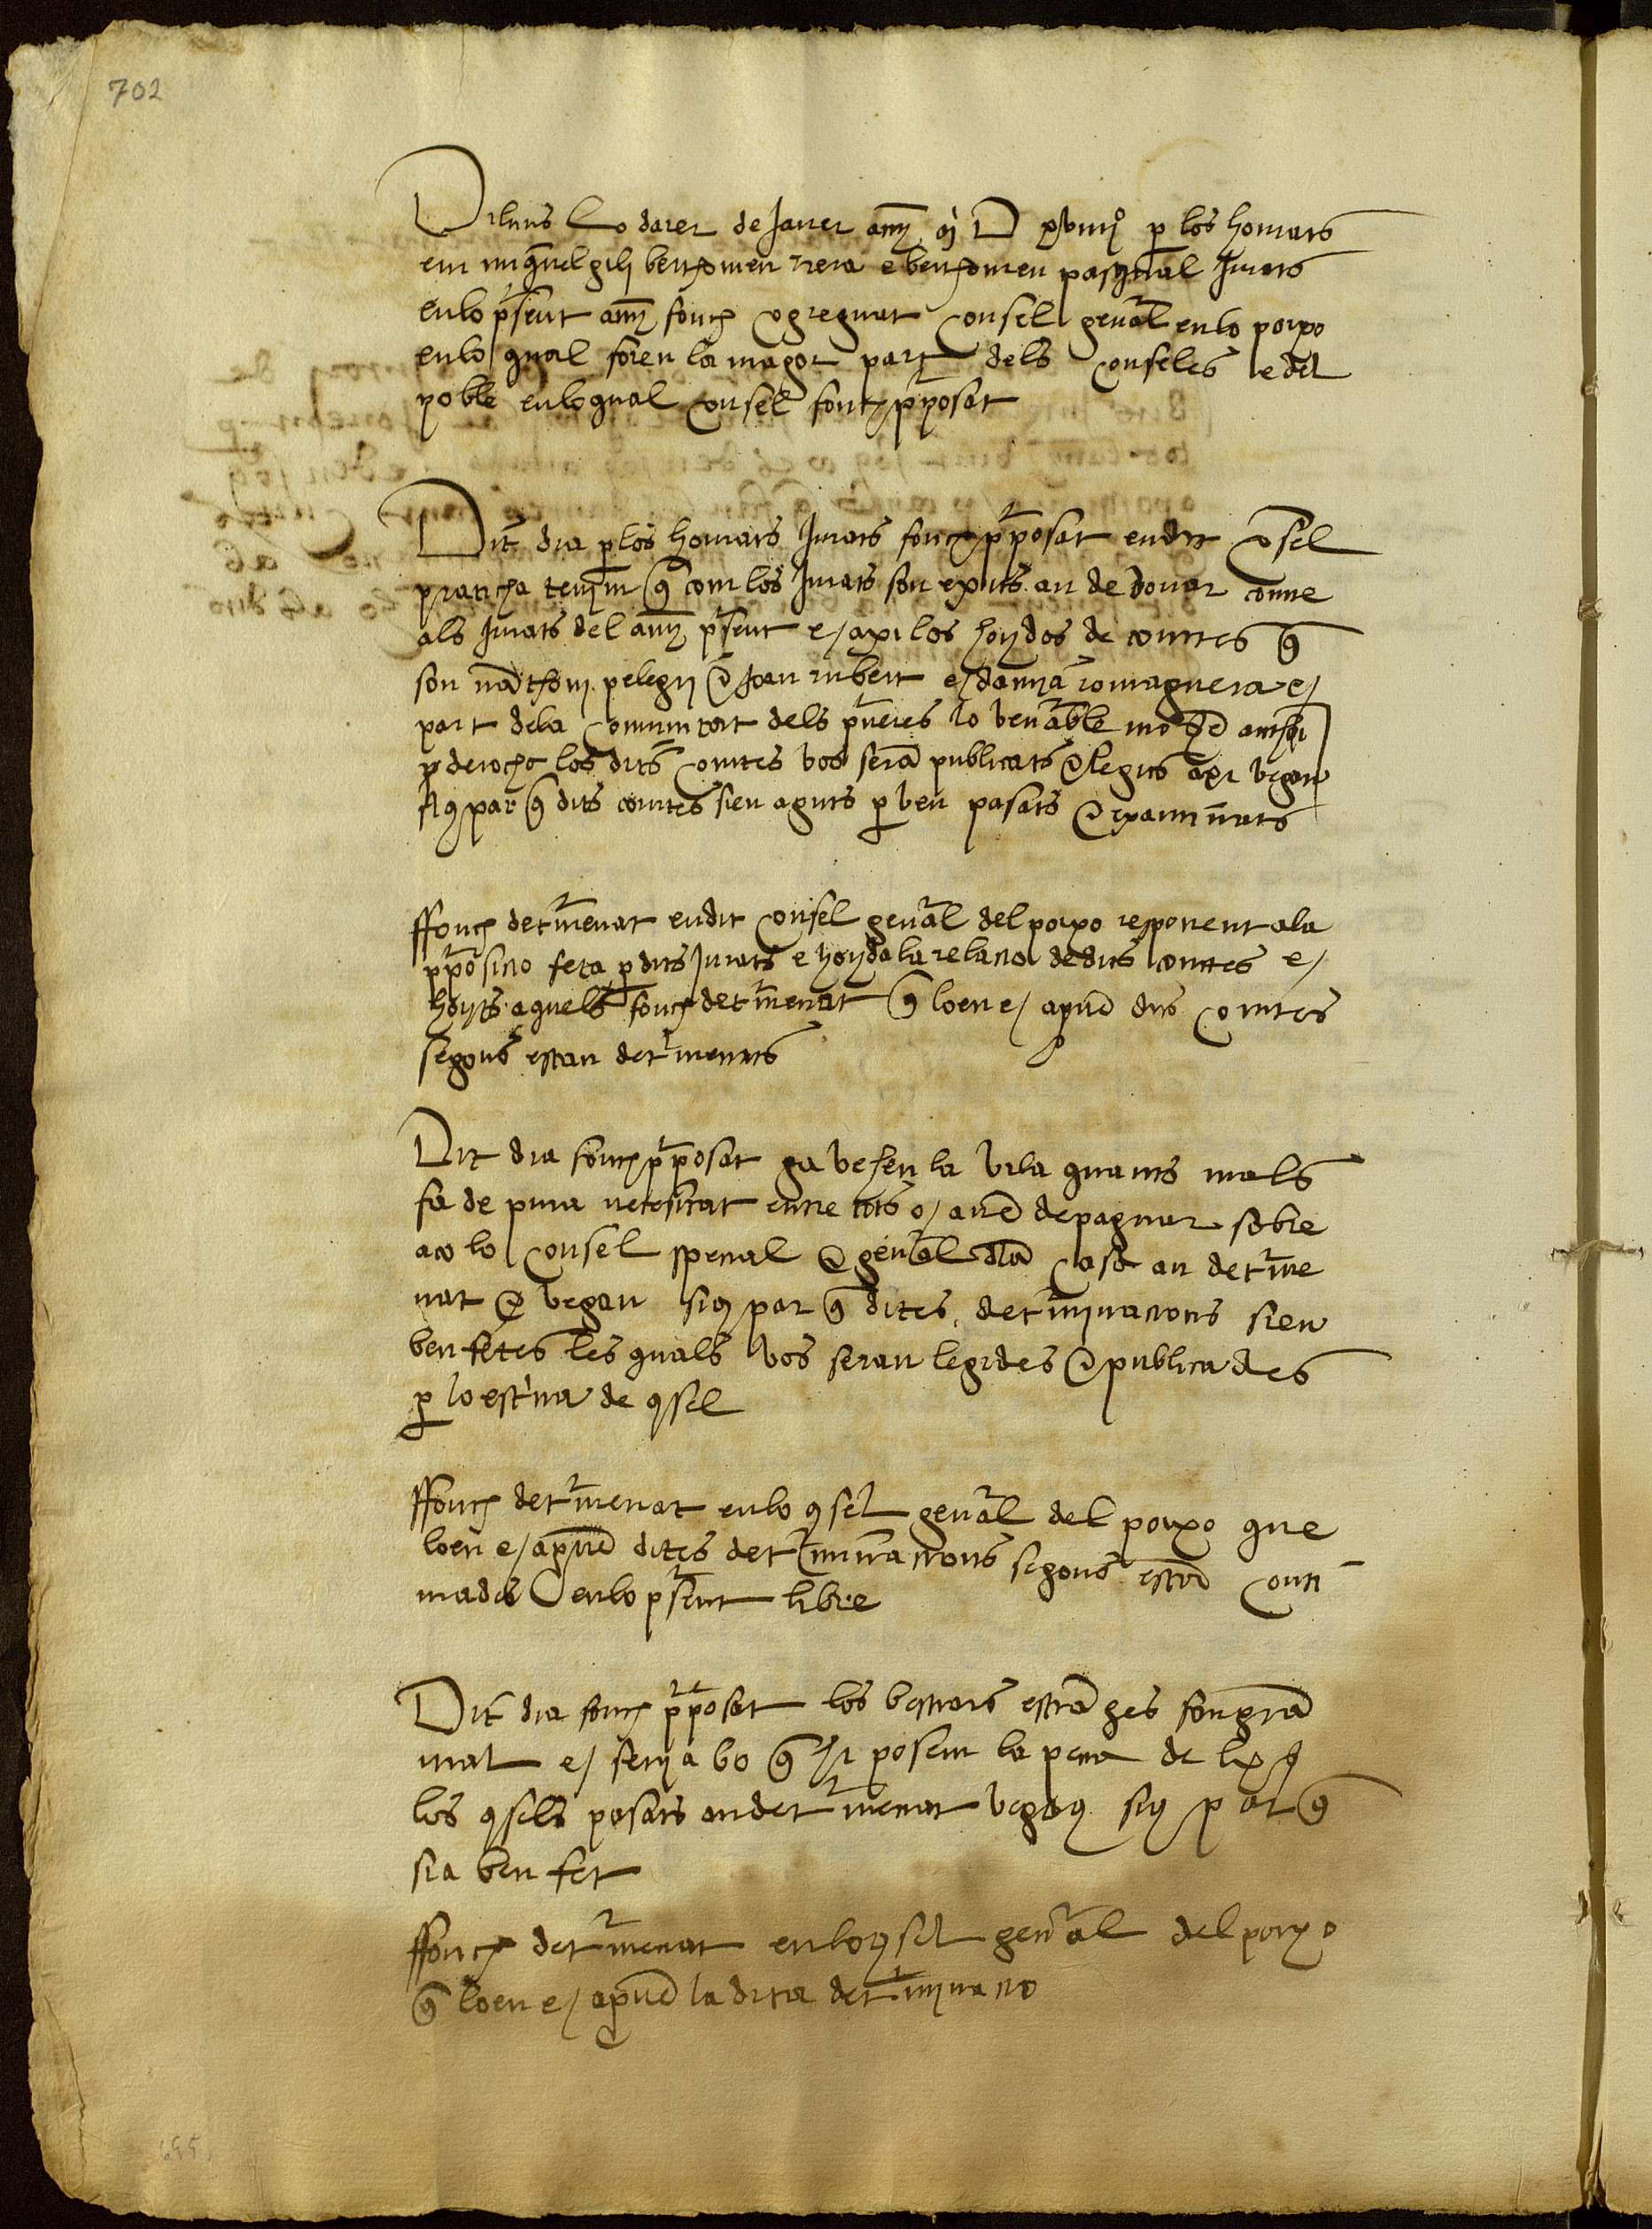 702
Diluns lo darer de Janer any M D xviiij per los honrats
en miquel gili berthomeu rera e berthomeu pasqual Jurats
en lo present any fonch congreguat Consel general en lo porxo
en lo qual foren la magor part dels Conseles e del
poble en lo qual Consel fonch proposat
Dit dia per los honrats Jurats fonch proposat en dit consel
praticha tenim que com los Jurats son exits an de donar conte
als Jurats del any present e/ axi los hoydos de comtes que
son nanthoni pelegri e Joan rubert e/ damia romaguera e/
part dela Comunitat dels preveres lo venerable mo anthoni
per deucha los dits Comtes vos seran publicats e legits axi vegau
sius par que dits comtes sien aguts per ven pasats e examinats
ffonch determenat en dit Consel general del porxo responent ala
proposicio feta per dits Jurats e hoyda la relacio de dits comtes e/
hoyts aquels fonch determenat que loen e/ aproven dits Comtes
segons estan determenats
Dit dia fonch proposat ja vesen la vila quants mals
fa de pura necesitat entre tots o/ aurem de paguar sobre
aco lo Consel spenal e general dela casa an determe
nat e vegau sius par que dites determinacions sien
ben fetes les quals vos seran legides e publicades
per lo escriva de consel
ffonch determenat en lo consel general del porxo que
loen e/ aproven dites determinacions segons estan conti
nuades en lo present libre
Dit dia fonch proposat los bestiars estranges fon gran
mal e/ seria bo que si posem la pena de lx s
los consels pasats an determenat vegau siu par que
sia ben fet
ffonch determenat en lo consel general del porxo
que loen e/ aproven la dita determinacio